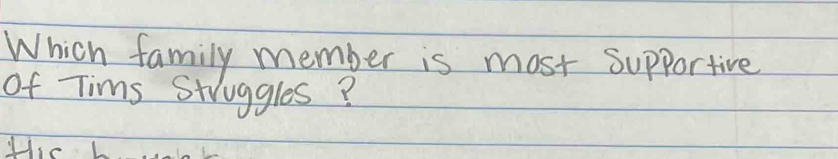 Which family member is most supportive
Of Tims Struggles?
His